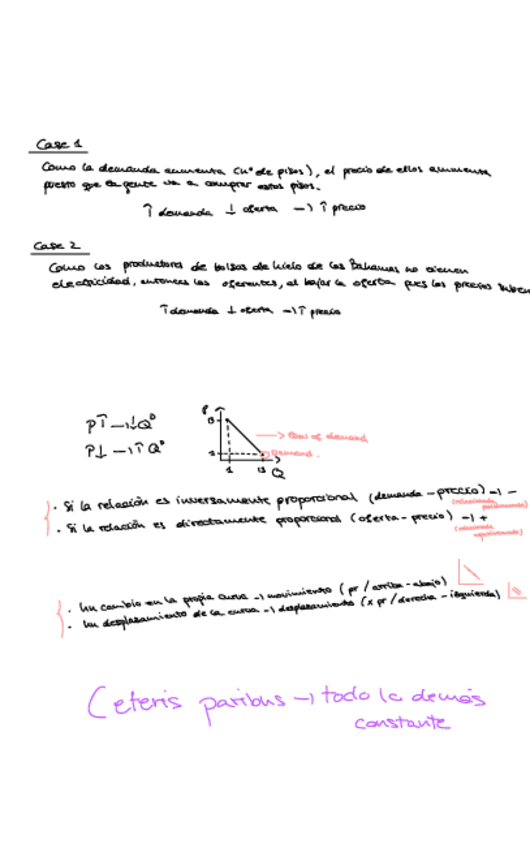 Case 1
Como la demanda aumenta (nº de pisos), el precio de ellos aumenta
puesto que la gente va a comprar estos pisos.
↑ demanda ↓ oferta → ↑ precio
Case 2
Como los productores de bolsas de hielo de las Bahamas no tienen
electricidad, entonces los oferentes, al bajar la oferta pues los precios suben
↑ demanda ↓ oferta → ↑ precio
P↑ → ↓Qᴰ
P↓ → ↑Qᴰ
P
1
1
13
Q
of demand
Demand.
· Si la relación es inversamente proporcional (demanda - precio) → -
· Si la relación es directamente proporcional (oferta - precio) → +
· Un cambio en la propia curva → movimiento (pr / arriba - abajo)
· Un desplazamiento de la curva → desplazamiento (x pr / derecha - izquierda)
Ceteris paribus → todo lo demás
constante